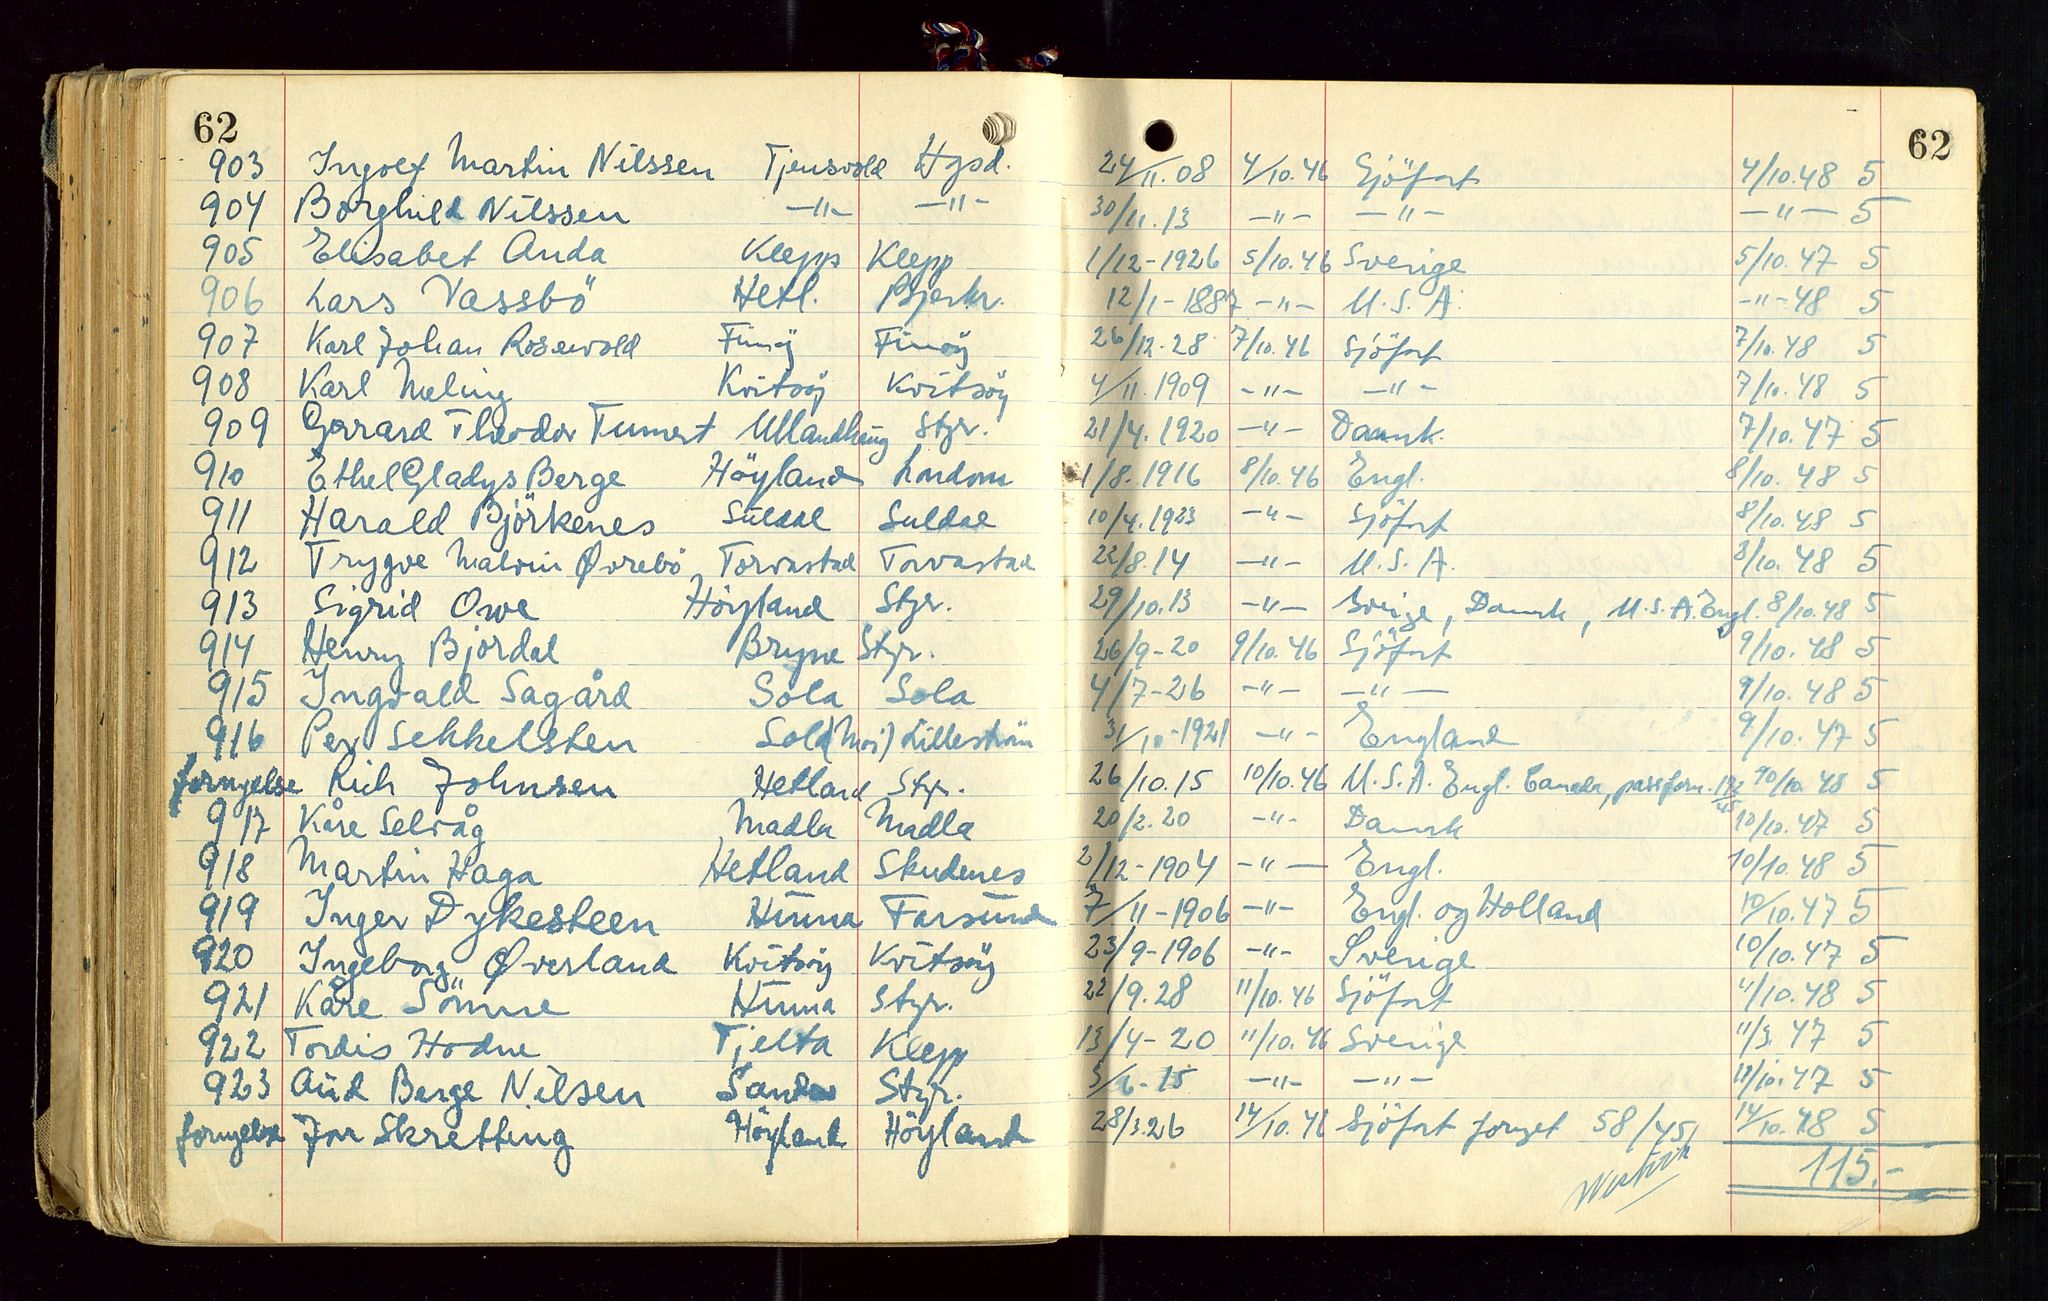 62 62
903 Ingolf Martin Nilssen Tjensvold Hgsd. 24/11.08 4/10.46 Sjöfart 4/10.48 5
904 Borghild Nilssen —"— —"— 30/11.13 —"— —"— —"— 5
905 Elisabet Anda Klepp Klepp 1/12-1926 5/10.46 Sverige 5/10.47 5
906 Lars Vassbö Hetl. Bjerkr. 12/1-1887 —"— U.S.A. —"—48 5
907 Karl Johan Rosenvold Finnöy Finnöy 26/12.28 7/10.46 Sjöfart 7/10.48 5
908 Karl Meling Kvitsöy Kvitsöy 4/11.1909 —"— —"— 7/10.48 5
909 Gerrard Theodor Ullandhaug Styr. 21/4.1920 —"— Danmk. 7/10.47 5
910 Ethel Gladys Berge Höyland London 1/8.1916 8/10.46 Engl. 8/10.48 5
911 Harald Björkenes Suldal Suldal 10/4.1923 —"— Sjöfart 8/10.48 5
912 Trygve Malvin Øvrebö Torvastad Torvastad 22/8.14 —"— U.S.A. 8/10.48 5
913 Sigrid Owe Höyland Styr. 29/10.13 —"— Sverige, Danmk, U.S.A. Engl. 8/10.48 5
914 Henry Bjordal Bryne Styr. 26/9-20 9/10.46 Sjöfart 9/10.48 5
915 Ingvald Sagård Sola Sola 4/7-26 —"— —"— 9/10.48 5
916 Per Sekkelsten Sola Lilleström 31/10-1921 —"— England 9/10.47 5
fornyelse Rich Johnsen Hetland Styr. 26/10.15 10/10.46 U.S.A. Engl. Canada, passforn. 10/10.48 5
917 Kåre Selvåg Madla Madla 20/2.20 —"— Danmk 10/10.47 5
918 Martin Haga Hetland Skudenes 2/12-1904 —"— Engl. 10/10.48 5
919 Inger Dykesteen Hinna Farsund 7/11-1906 —"— Engl. og Holland 10/10.47 5
920 Ingeborg Øverland Kvitsöy Kvitsöy 23/9-1906 —"— Sverige 10/10.47 5
921 Kåre Sömme Hinna Styr. 22/9.28 11/10.46 Sjöfart 11/10.48 5
922 Tordis Hodne Tjelta Klepp 13/4-20 11/10.46 Sverige 11/3.47 5
923 Aud Berge Nilsen Sandn Styr. 5/6-15 —"— —"— 11/10.47 5
fornyelse Jon Skretting Höyland Höyland 28/3.26 14/10.46 Sjöfart fornyet 58/45 14/10.48 5
115.-